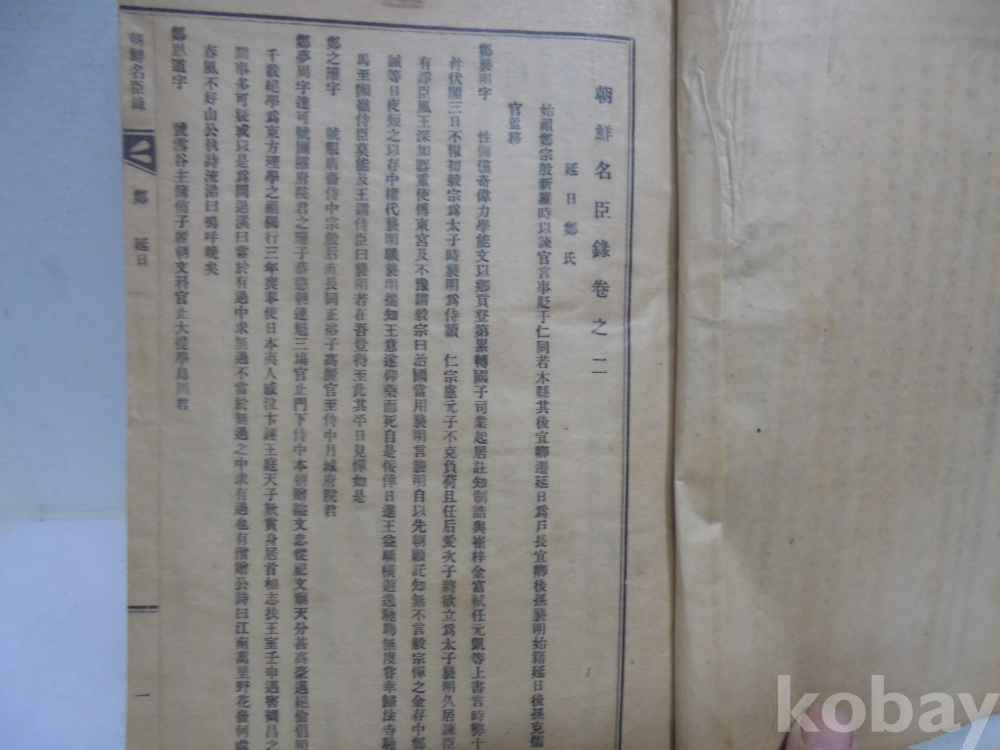 朝鮮名臣錄卷之二
延日鄭氏
始祖鄭宗殷新羅時以諫官言事貶于仁同若木縣其後宜卿還延日爲戶長宜卿後孫襲明始籍延日後孫克儒
官監務
鄭襲明字 性倜儻奇偉力學能文以鄕貢登第累轉國子司業起居註知制誥與崔梓金富軾任元凱等上書言時弊十
件伏閤三日不報初毅宗爲太子時襲明爲侍讀 仁宗慮元子不克負荷且任后愛次子將欲立爲太子襲明久居諫臣
有諍臣風王深加器重使傅東宮及不豫謂毅宗曰治國當用襲明言襲明自以先朝顧託知無不言毅宗憚之金存中鄭
誠等日夜短之以存中權代襲明職襲明揣知王意遂仰藥而死自是侫倖日進王益驕橫遊逸馳騁無度甞幸歸法寺馳
馬至獺嶺侍臣莫能及王謂侍臣曰襲明若在吾豈得至此其平日見憚如是
鄭之瓘字 號 侍中宗殷后直長同正裕子高麗官至侍中月城府院君
鄭夢周字達可號圃隱府院君之瓘子恭愍朝連魁三塲官止門下侍中本朝贈諡文忠從祀文廟天分甚高豪邁絕倫倡明
千載絕學爲東方理學之祖獨行三年喪奉使日本夷人感泣卞誣王庭天子歎賞身居首相志扶王室壬申遇害 之
事多可疑或以是爲問退溪曰當於有過中求無過不當於無過之中求有過也有僧贈公詩曰江南萬里野花發何處
春風不好山公執詩流涕曰嗚呼晩矣
鄭思道字 號雪谷 朝文科官止大提學烏川君
朝鮮名臣錄
鄭 延日
一
kobay